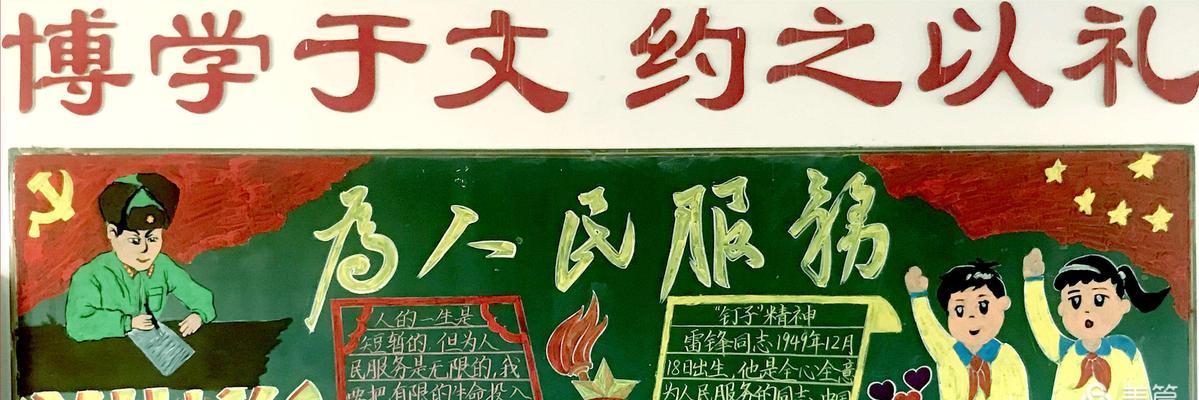 博学于文 约之以礼
为人民服務
人的一生是
短暂的,但为人
民服务是无限的,我
要把有限的生命投入
"钉子"精神
雷锋同志1949年12月
18日出生,他是全心全意
为人民服务的同志,中国
美篇